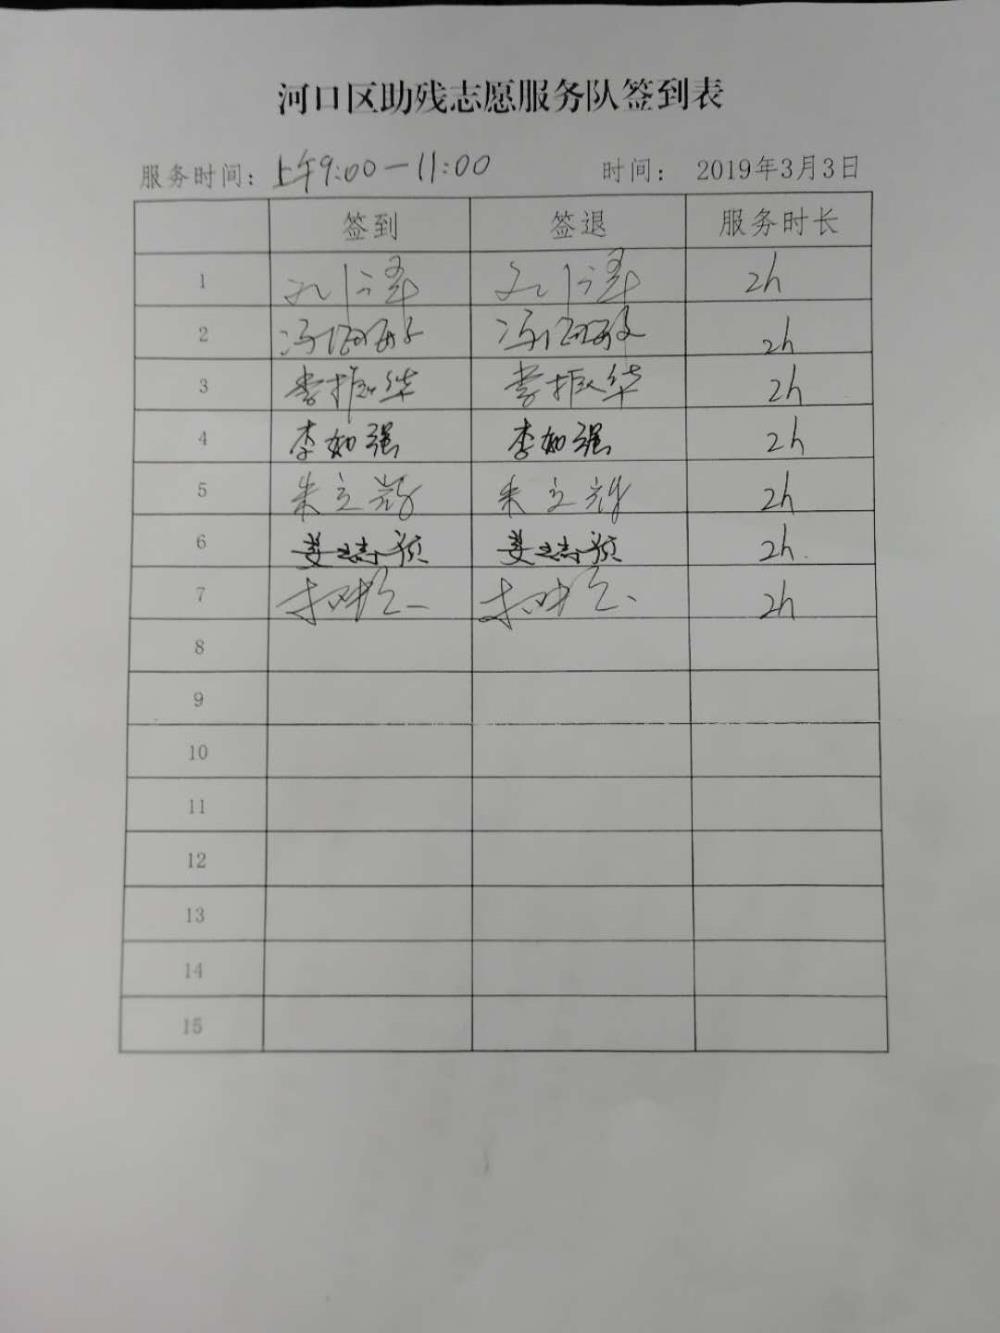 河口区助残志愿服务队签到表
服务时间：上午9:00—11:00 时间： 2019年3月3日
签到 签退 服务时长
1 2h
2 2h
3 李振华 李振华 2h
4 李如强 李如强 2h
5 朱立辉 朱立辉 2h
6 姜志颖 姜志颖 2h.
7 2h
8
9
10
11
12
13
14
15